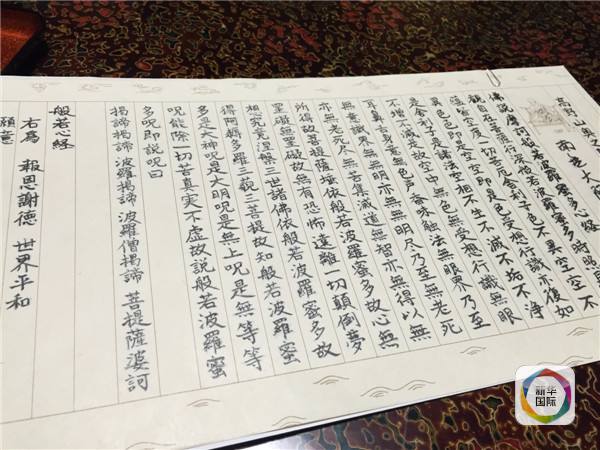 高野山奥之
南無大
佛説摩訶般若波羅蜜多心経
観自在菩薩行深般若波羅蜜多時照見
蘊皆空度一切苦厄舎利子色不異空空不
異色色即是空空即是色受想行識亦復如
是舎利子是諸法空相不生不滅不垢不浄
不増不減是故空中無色無受想行識無眼
耳鼻舌身意無色声香味触法無眼界乃至
無意識界無無明亦無無明尽乃至無老死
亦無老死尽無苦集滅道無智亦無得以無
所得故菩提薩埵依般若波羅蜜多故心無
罣礙無罣礙故無有恐怖遠離一切顛倒夢
想究竟涅槃三世諸佛依般若波羅蜜多故
得阿耨多羅三藐三菩提故知般若波羅蜜
多是大神呪是大明呪是無上呪是無等等
呪能除一切苦真実不虚故説般若波羅蜜
多呪即説呪曰
揭諦揭諦 波羅揭諦 波羅僧揭諦 菩提薩婆訶
般若心経
右為 報恩謝徳 世界平和
願意
新华
国际